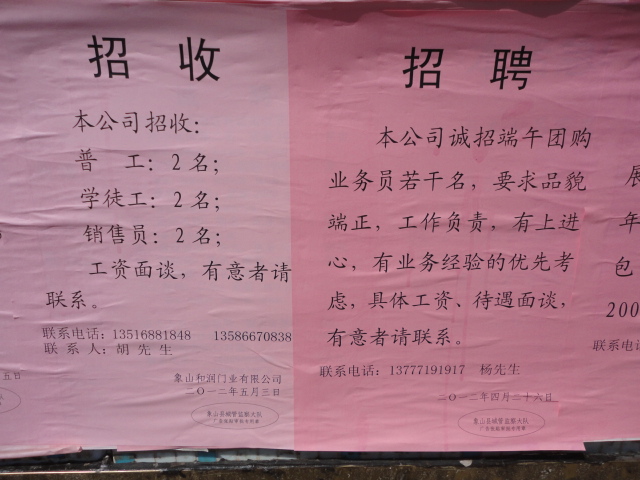 招 收
本公司招收：
普 工：2 名；
学徒工：2 名；
销售员：2 名；
工资面谈，有意者请
联系。
联系电话：13516881848 13586670838
联 系 人：胡 先 生
象山和润门业有限公司
二〇一二年五月三日
象山县城管监察大队
五日
招 聘
本公司诚招端午团购
业务员若干名，要求品貌
端正，工作负责，有上进
心，有业务经验的优先考
虑，具体工资、待遇面谈，
有意者请联系。
联系电话：13777191917 杨先生
二〇一二年四月二十六日
象山县城管监察大队
展
年
包
200
联系电